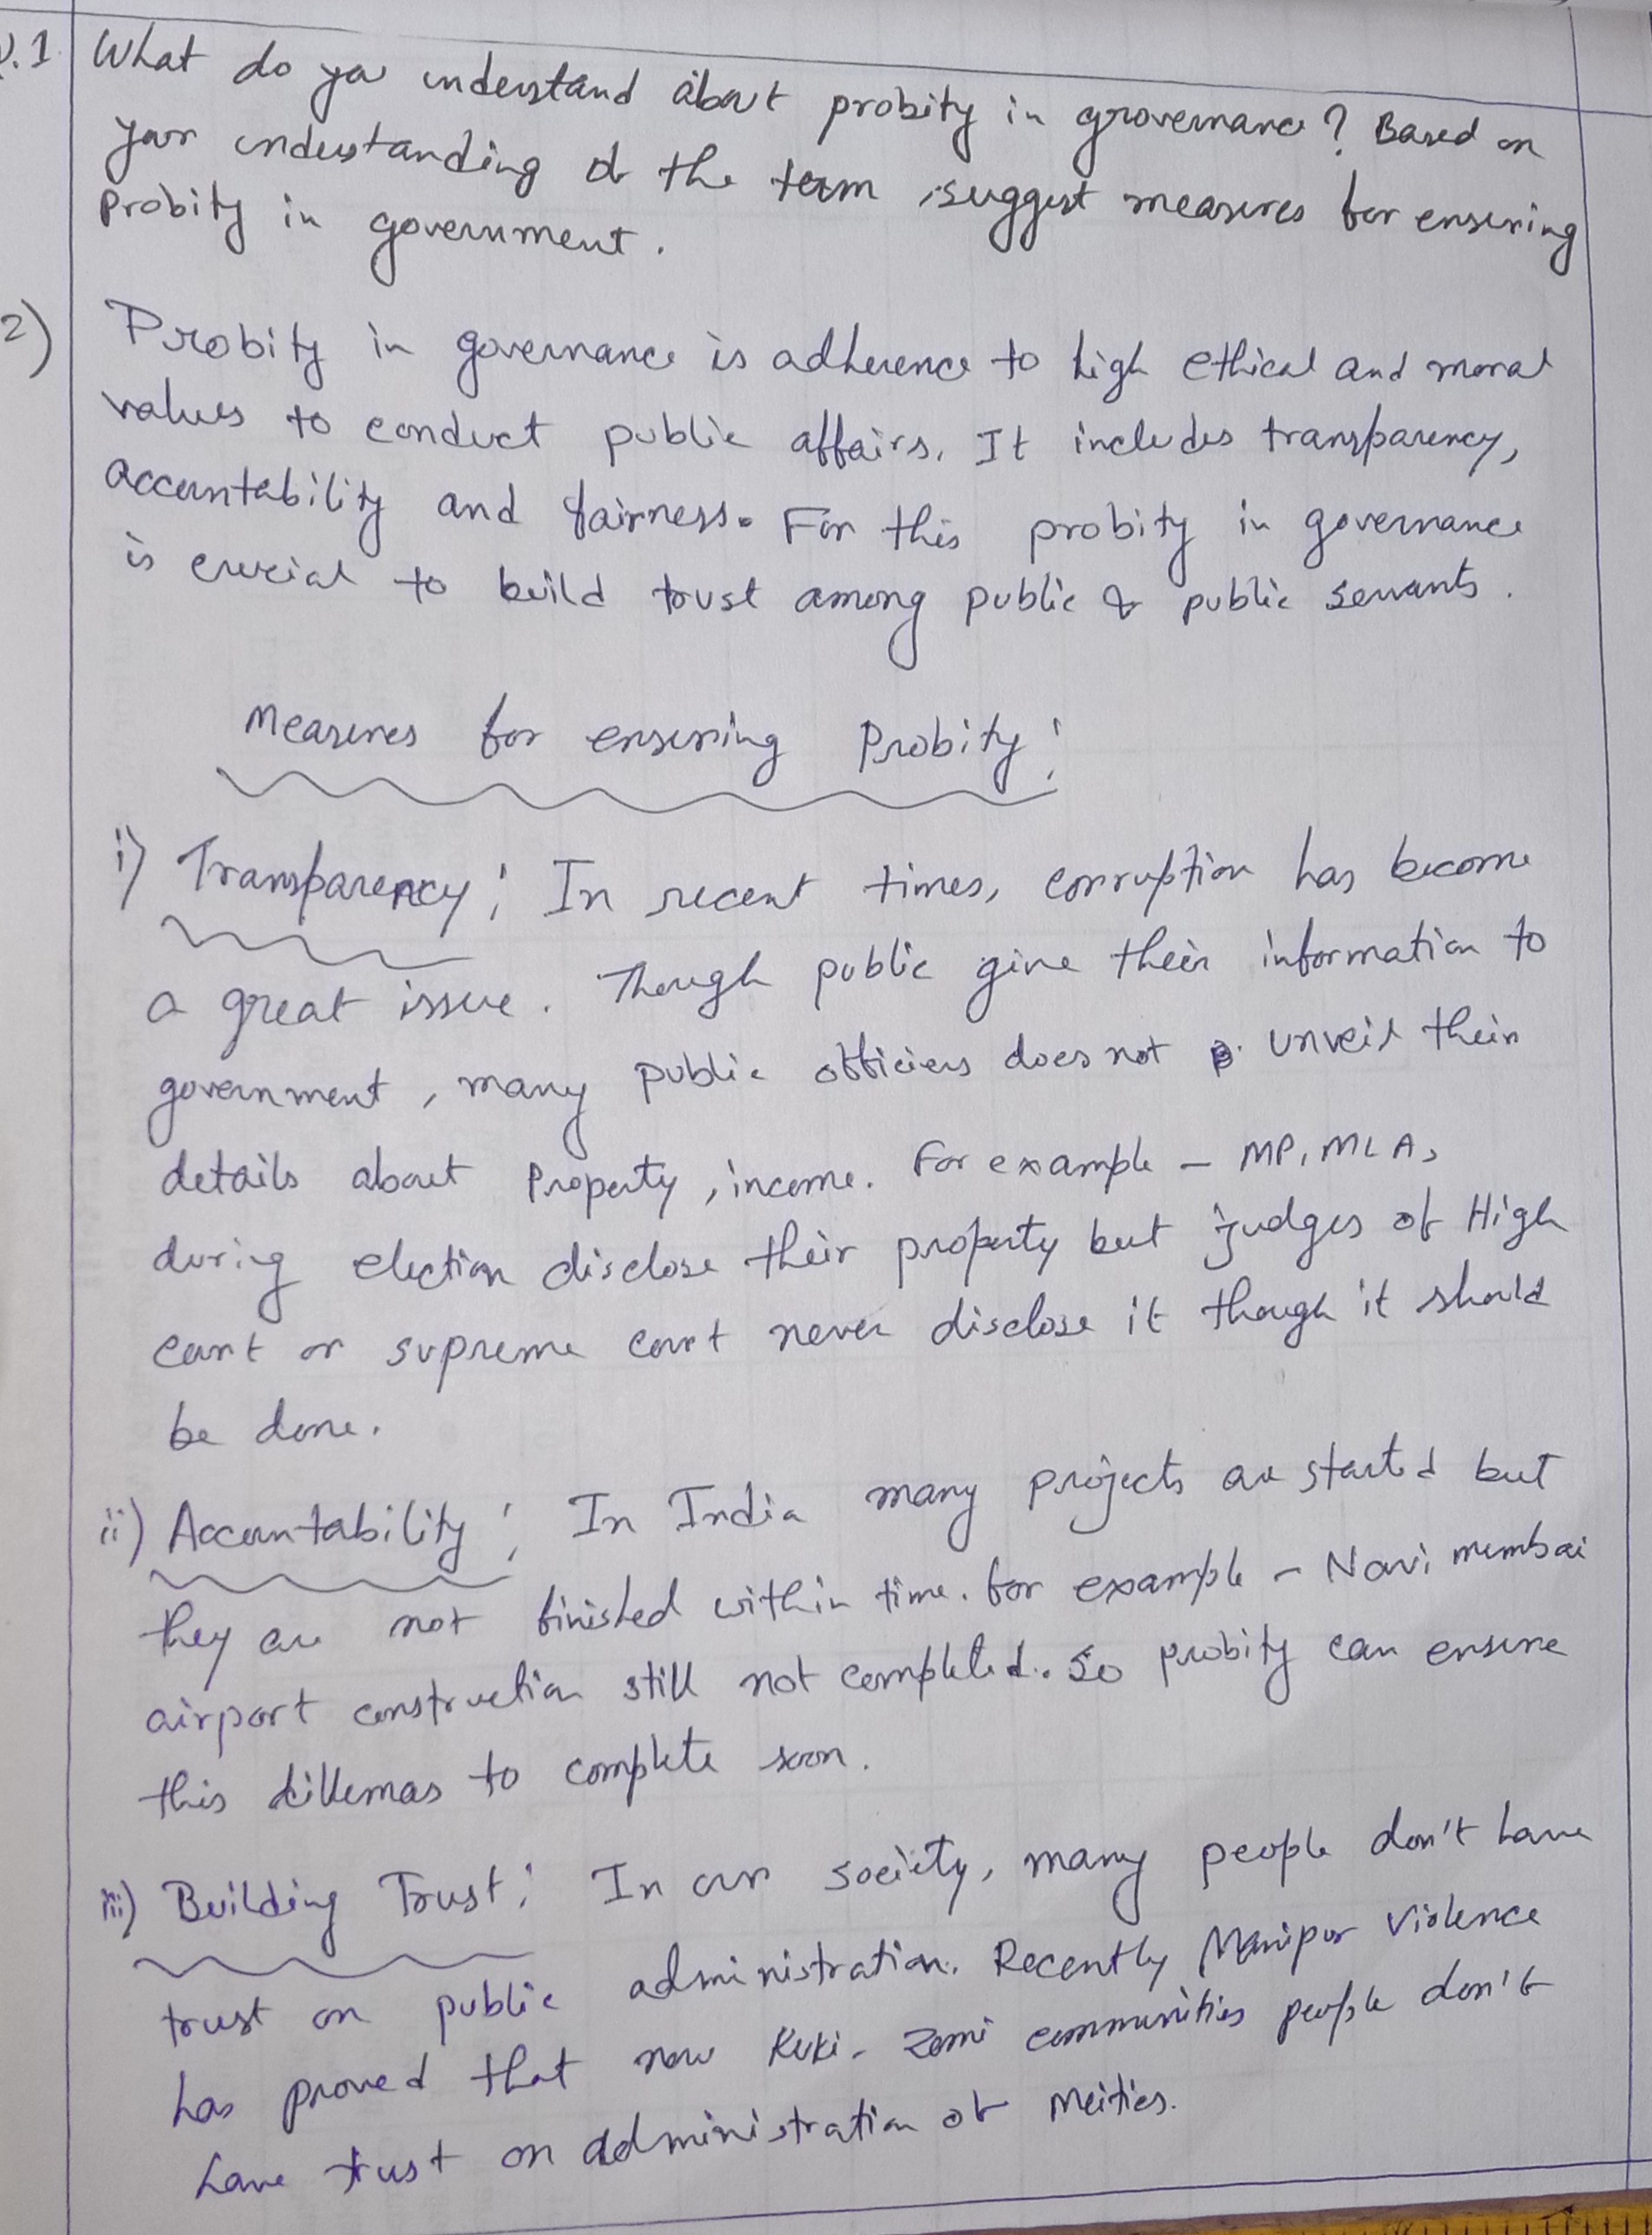 .1 What do you understand about probity in grovernance? Based on
your understanding of the term, suggest measures for ensuring
probity in government.
2) Probity in governance is adherence to high ethical and moral
values to conduct public affairs. It includes transparency,
accountability and fairness. For this probity in governance
is crucial to build trust among public & public servants.
Measures for ensuring Probity:
i) Transparency: In recent times, corruption has become
a great issue. Though public give their information to
government, many public officiers does not unveil their
details about Property, income. For example - MP, MLA,
during election disclose their property but judges of High
court or supreme court never disclose it though it should
be done.
ii) Accountability: In India many projects are started but
they are not finished within time. for example - Navi mumbai
airport construction still not completed. So probity can ensure
this dillemas to complete soon.
iii) Building Trust: In our society, many people don't have
trust on public administration. Recently Manipur Violence
has proved that now Kuki-Zomi communities people don't
have trust on administration of Meities.